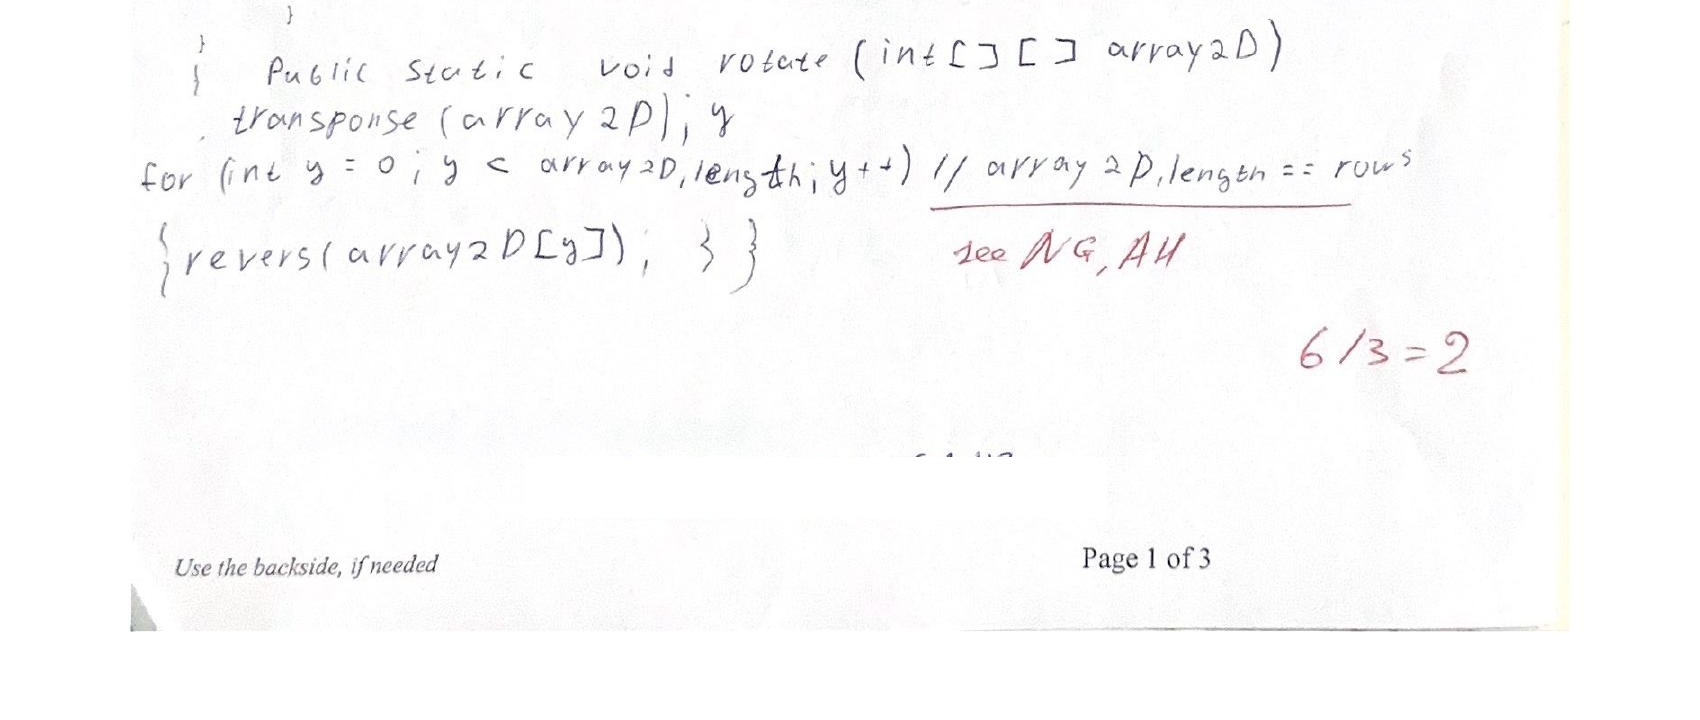 }
}
{ Public static void rotate (int[][] array2D)
transponse (array2D); y
for (int y = 0; y < array2D.length; y++) // array2D.length == rows
{ revers(array2D[y]); } }
see NG, AH
6/3=2
Use the backside, if needed
Page 1 of 3